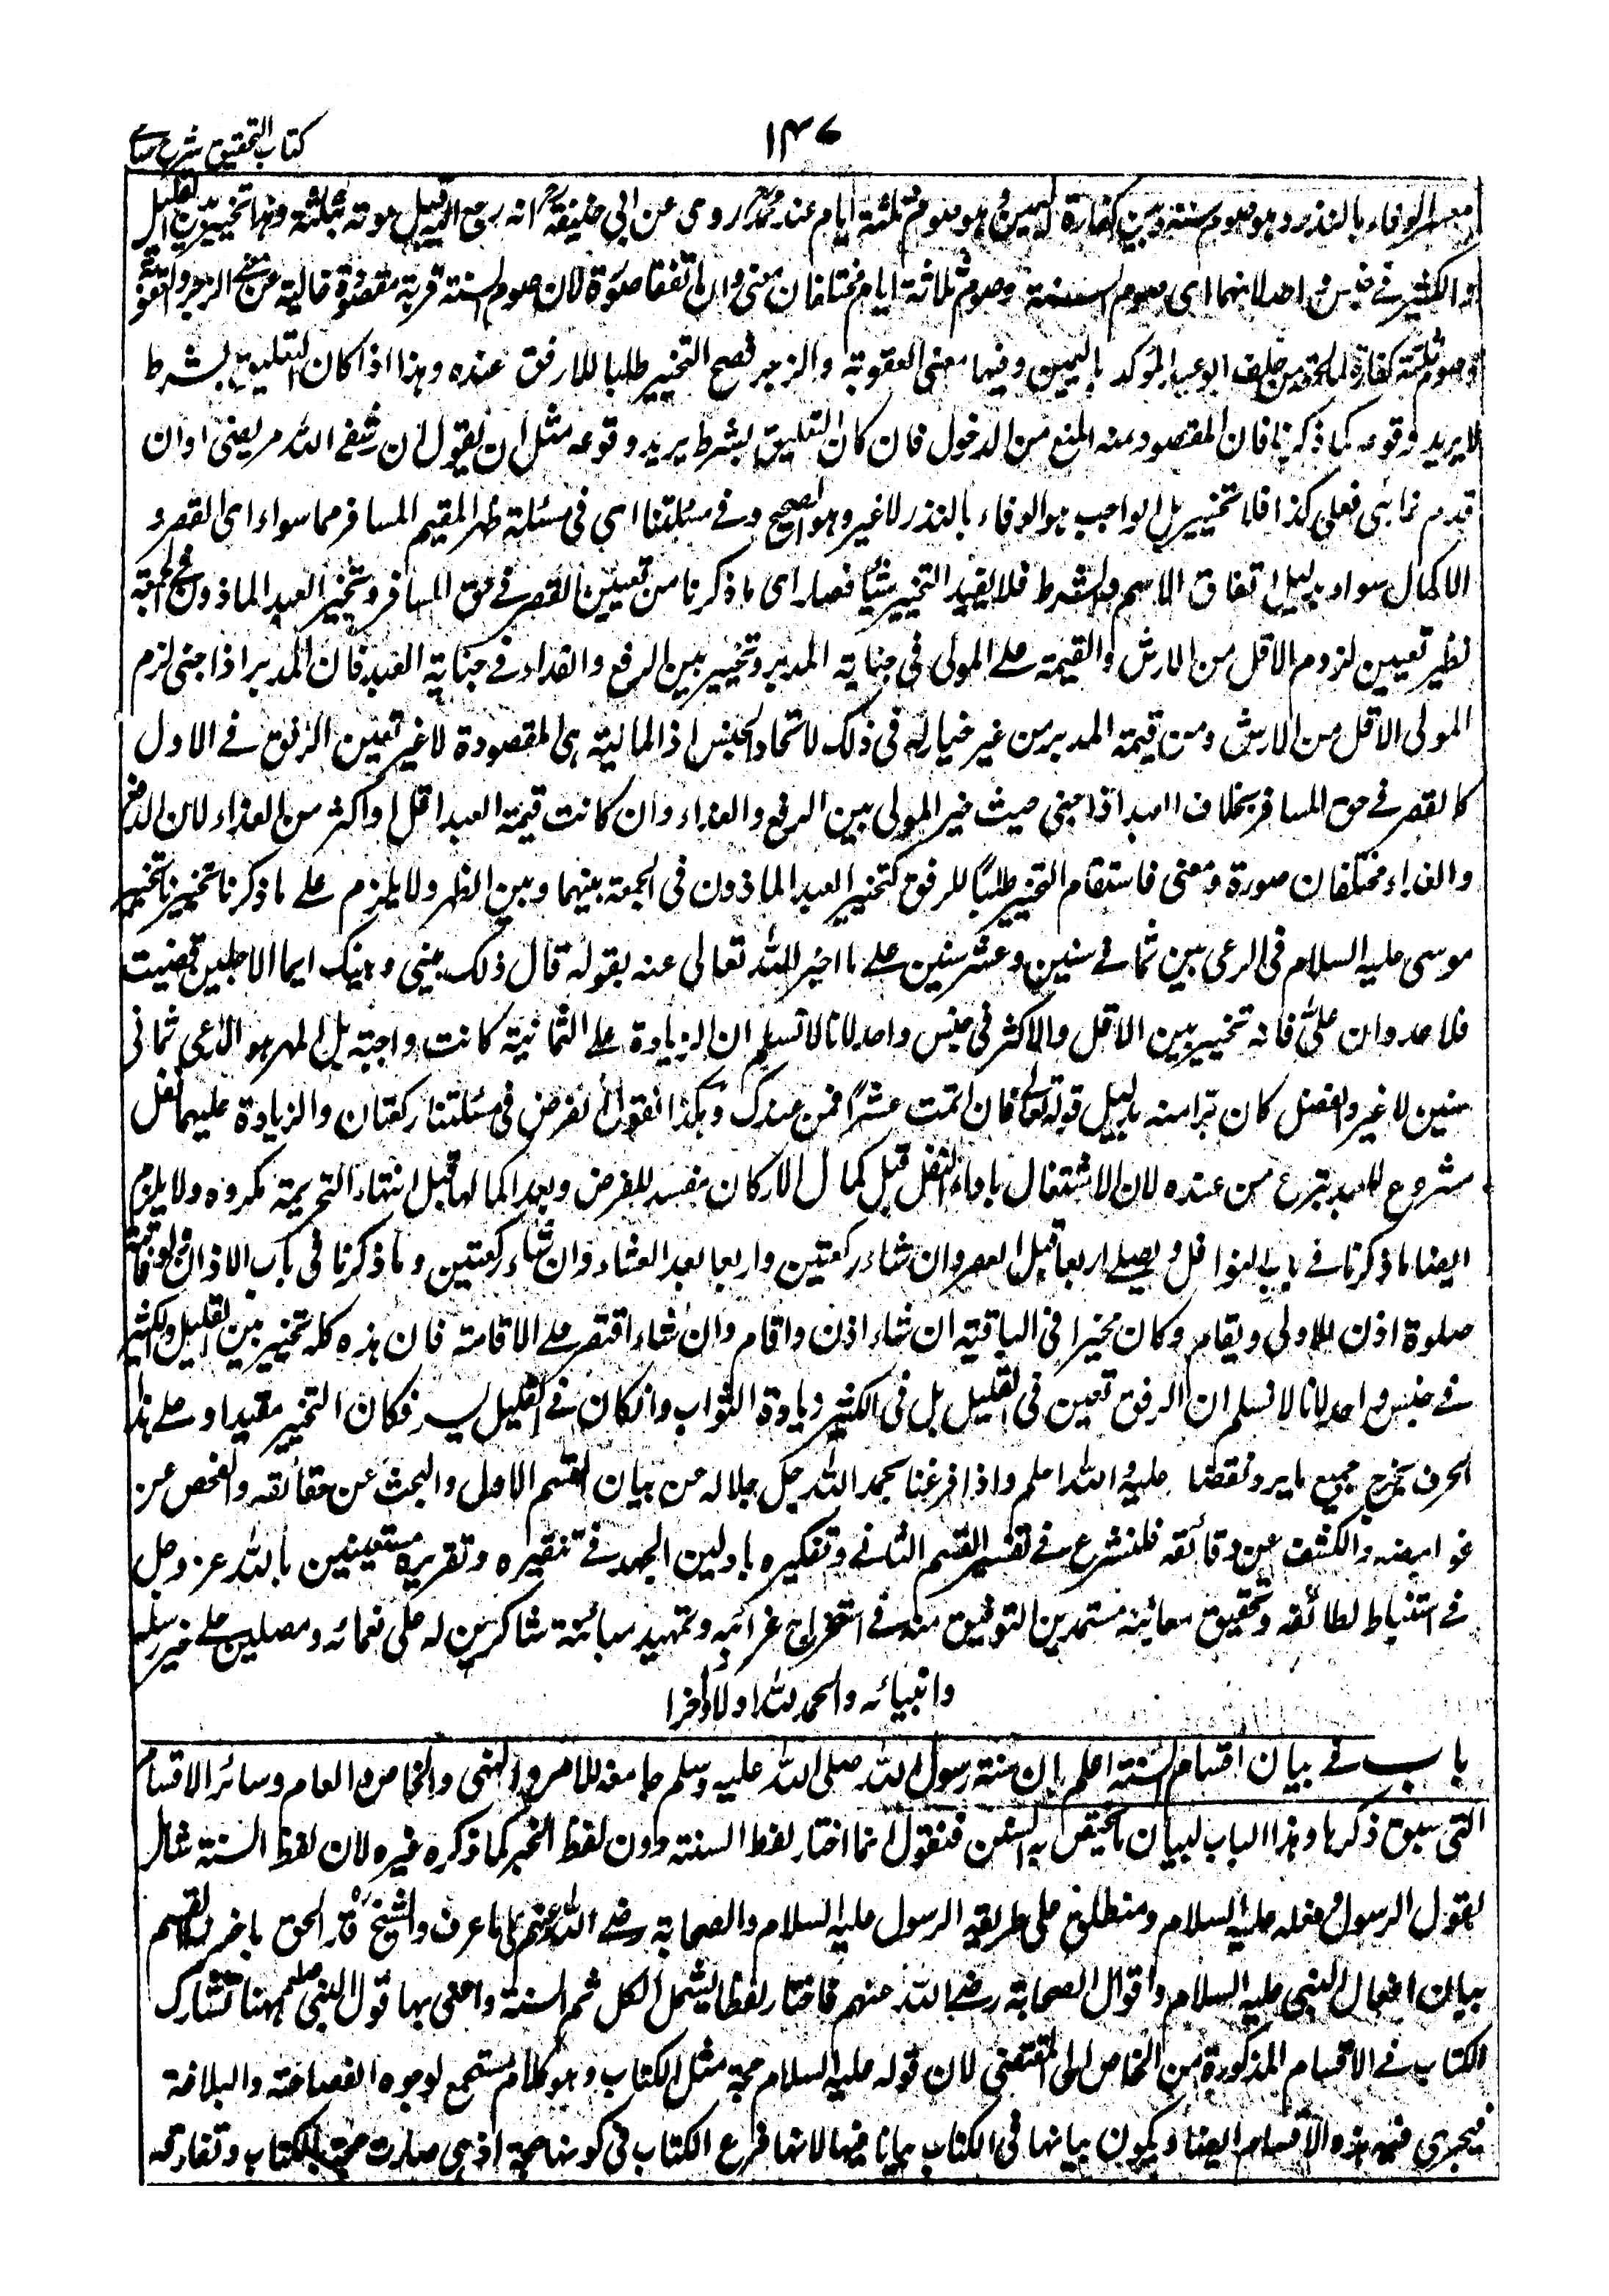 كتاب التحقيق شرح حسامي
١٤٧
معسر الوفاء بالنذر وهو صوم سنة وبين كفارة اليمين وهو صوم ثلثة ايام عند محمد روى عن ابي حنيفة انه رجع اليه قبل موته بثلثة وهذا تخيير بين القليل
والكثير في جنس واحد لانهما اى صوم السنة وصوم ثلاثة ايام مختلفان معنى وان اتفقا صورة لان صوم السنة قربة مقصودة خالية عن معنى الزجر والعقوبة
وصوم ثلثة كفارة لما لحقه من خلف الوعيد المؤكد باليمين وفيها معنى العقوبة والزجر فصح التخيير طلبا للارفق عنده وهذا اذا كان التعليق بشرط
لا يريد وقوعه كما ذكرنا فان المقصود منه المنع من الدخول فان كان التعليق بشرط يريد وقوعه مثل ان يقول ان شفى الله مريضى او ان
قدم غائبى فعلى كذا فلا تخيير بل الواجب هو الوفاء بالنذر لا غير وهو الصحيح وفي مسئلتنا اى في مسئلة ظهر المقيم المسافر هما سواء اى القصر و
الاكمال سواء بدليل اتفاق الاسم والشرط فلا يفيد التخيير شيئا فصار اى ما ذكرنا من تعيين القصر في حق المسافر وتخيير العبد الماذون في الجمعة
نظير تعيين لزوم الاقل من الارش والقيمة على المولى في جناية المدبر وتخيير بين الدفع والفداء في جناية العبد فان المدبر اذا جنى لزم
المولى الاقل من الارش ومن قيمة المدبر من غير خيار له في ذلك لاتحاد الجنس اذ المالية هى المقصودة لا غير فتعين الرفق في الاول
كالقصر في حق المسافر بخلاف العبد اذا جنى حيث خير المولى بين الدفع والفداء وان كانت قيمة العبد اقل او اكثر من الفداء لان الدفع
والفداء مختلفان صورة ومعنى فاستقام التخيير طلبا للرفق كتخيير العبد الماذون فى الجمعة بينهما وبين الظهر ولا يلزم على ما ذكرنا تخيير
موسى عليه السلام فى الرعى بين ثمانى سنين وعشر سنين على ما اخبر الله تعالى عنه بقوله قال ذلك بينى وبينك ايما الاجلين قضيت
فلا عدوان على فانه تخيير بين الاقل والاكثر فى جنس واحد لانا لا نسلم ان الزيادة على الثمانية كانت واجبة بل المهر هو الرعى ثمانى
سنين لا غير والفضل كان برا منه بدليل قوله تعالى فان اتممت عشرا فمن عندك وهكذا نقول الفرض فى مسئلتنا ركعتان والزيادة عليهما نفل
مشروع للعبد تبرع من عنده لان الاشتغال باداء النفل قبل كمال الاركان مفسد للفرض وبعد اكمالها قبل انتهاء التحريمة مكروه ولا يلزم
ايضا ما ذكرنا فى باب النوافل ويصلى اربعا قبل العصر وان شاء ركعتين واربعا بعد العشاء وان شاء ركعتين وما ذكرنا فى باب الاذان فمن فاتته
صلوة اذن للاولى ويقام وكان مخيرا فى الباقية ان شاء اذن واقام وان شاء اقتصر على الاقامة فان هذه كله تخيير بين القليل والكثير
فى جنس واحد لانا لا نسلم ان الرفق تعين فى القليل بل فى الكثير زيادة الثواب وان كان فى القليل يسر فكان التخيير مفيدا وعلى هذا
الحرف يخرج جميع ما يرد نقضا عليه والله اعلم واذا فرغنا بحمد الله جل جلاله عن بيان القسم الاول والبحث عن حقائقه والفحص عن
غوامضه والكشف عن دقائقه فلنشرع فى تفسير القسم الثانى وتفكيره باذلين الجهد فى تنقيره وتقريره مستعينين بالله عز وجل
فى استنباط لطائفه وتحقيق معانيه مستمدين التوفيق منه فى استخراج غرائبه وتمهيد مبانيه شاكرين له على نعمائه ومصلين على خير رسله
وانبيائه والحمد لله اولا واخرا
باب فى بيان اقسام السنة اعلم بان سنة رسول الله صلى الله عليه وسلم جامعة للامر والنهى والخاص والعام وسائر الاقسام
التى سبق ذكرها وهذا الباب لبيان ما يختص به السنن فنقول انما اختار لفظ السنة دون لفظ الخبر كما ذكره غيره لان لفظ السنة شامل
لقول الرسول وفعله عليه السلام ومنطلق على طريقة الرسول عليه السلام والصحابة رضى الله عنهم على ما عرف والشيخ قد الحق باخر القسم
بيان افعال النبى عليه السلام واقوال الصحابة رضى الله عنهم فاختار لفظا يشمل الكل ثم السنة واعنى بها قول النبى صلعم ههنا تشارك
الكتاب فى الاقسام المذكورة من الخاص الى المقتضى لان قوله عليه السلام حجة مثل الكتاب وهو كلام مستجمع لوجوه الفصاحة والبلاغة
فيجرى فيه هذه الاقسام ايضا ويكون بيانها فى الكتاب بيانا فيها لانها فرع الكتاب فى كونها حجة اذ هى صارت حجة بالكتاب وتفارقه